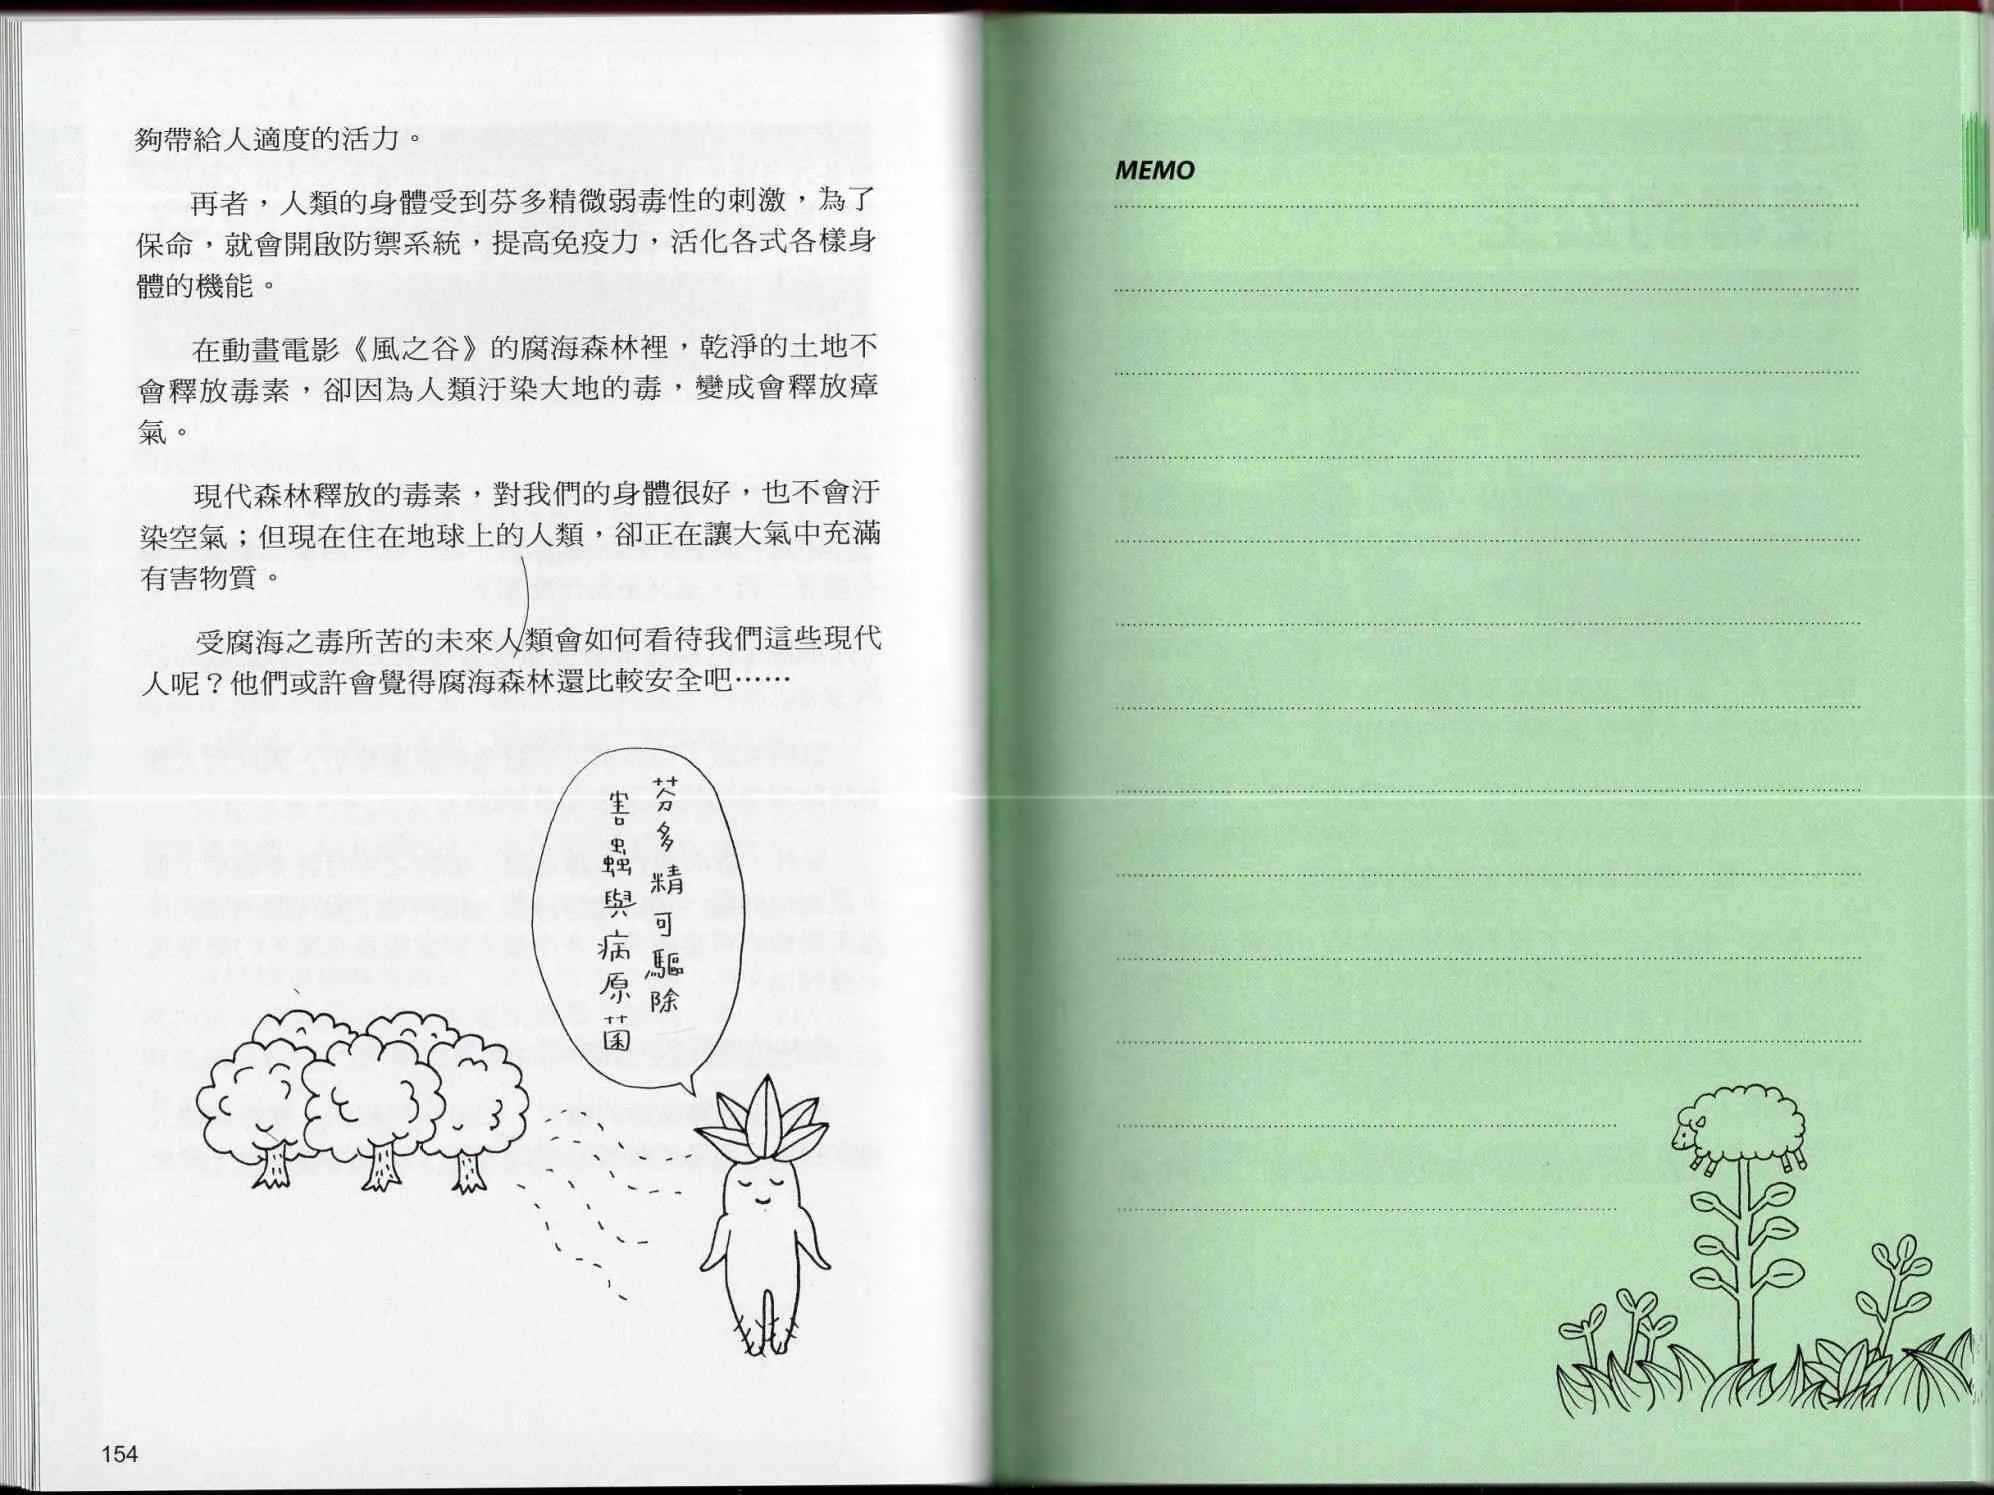 夠帶給人適度的活力。
再者，人類的身體受到芬多精微弱毒性的刺激，為了
保命，就會開啟防禦系統，提高免疫力，活化各式各樣身
體的機能。
在動畫電影《風之谷》的腐海森林裡，乾淨的土地不
會釋放毒素，卻因為人類汙染大地的毒，變成會釋放瘴
氣。
現代森林釋放的毒素，對我們的身體很好，也不會汙
染空氣；但現在住在地球上的人類，卻正在讓大氣中充滿
有害物質。
受腐海之毒所苦的未來人類會如何看待我們這些現代
人呢？他們或許會覺得腐海森林還比較安全吧……
芬多精可驅除
害蟲與病原菌
154
MEMO